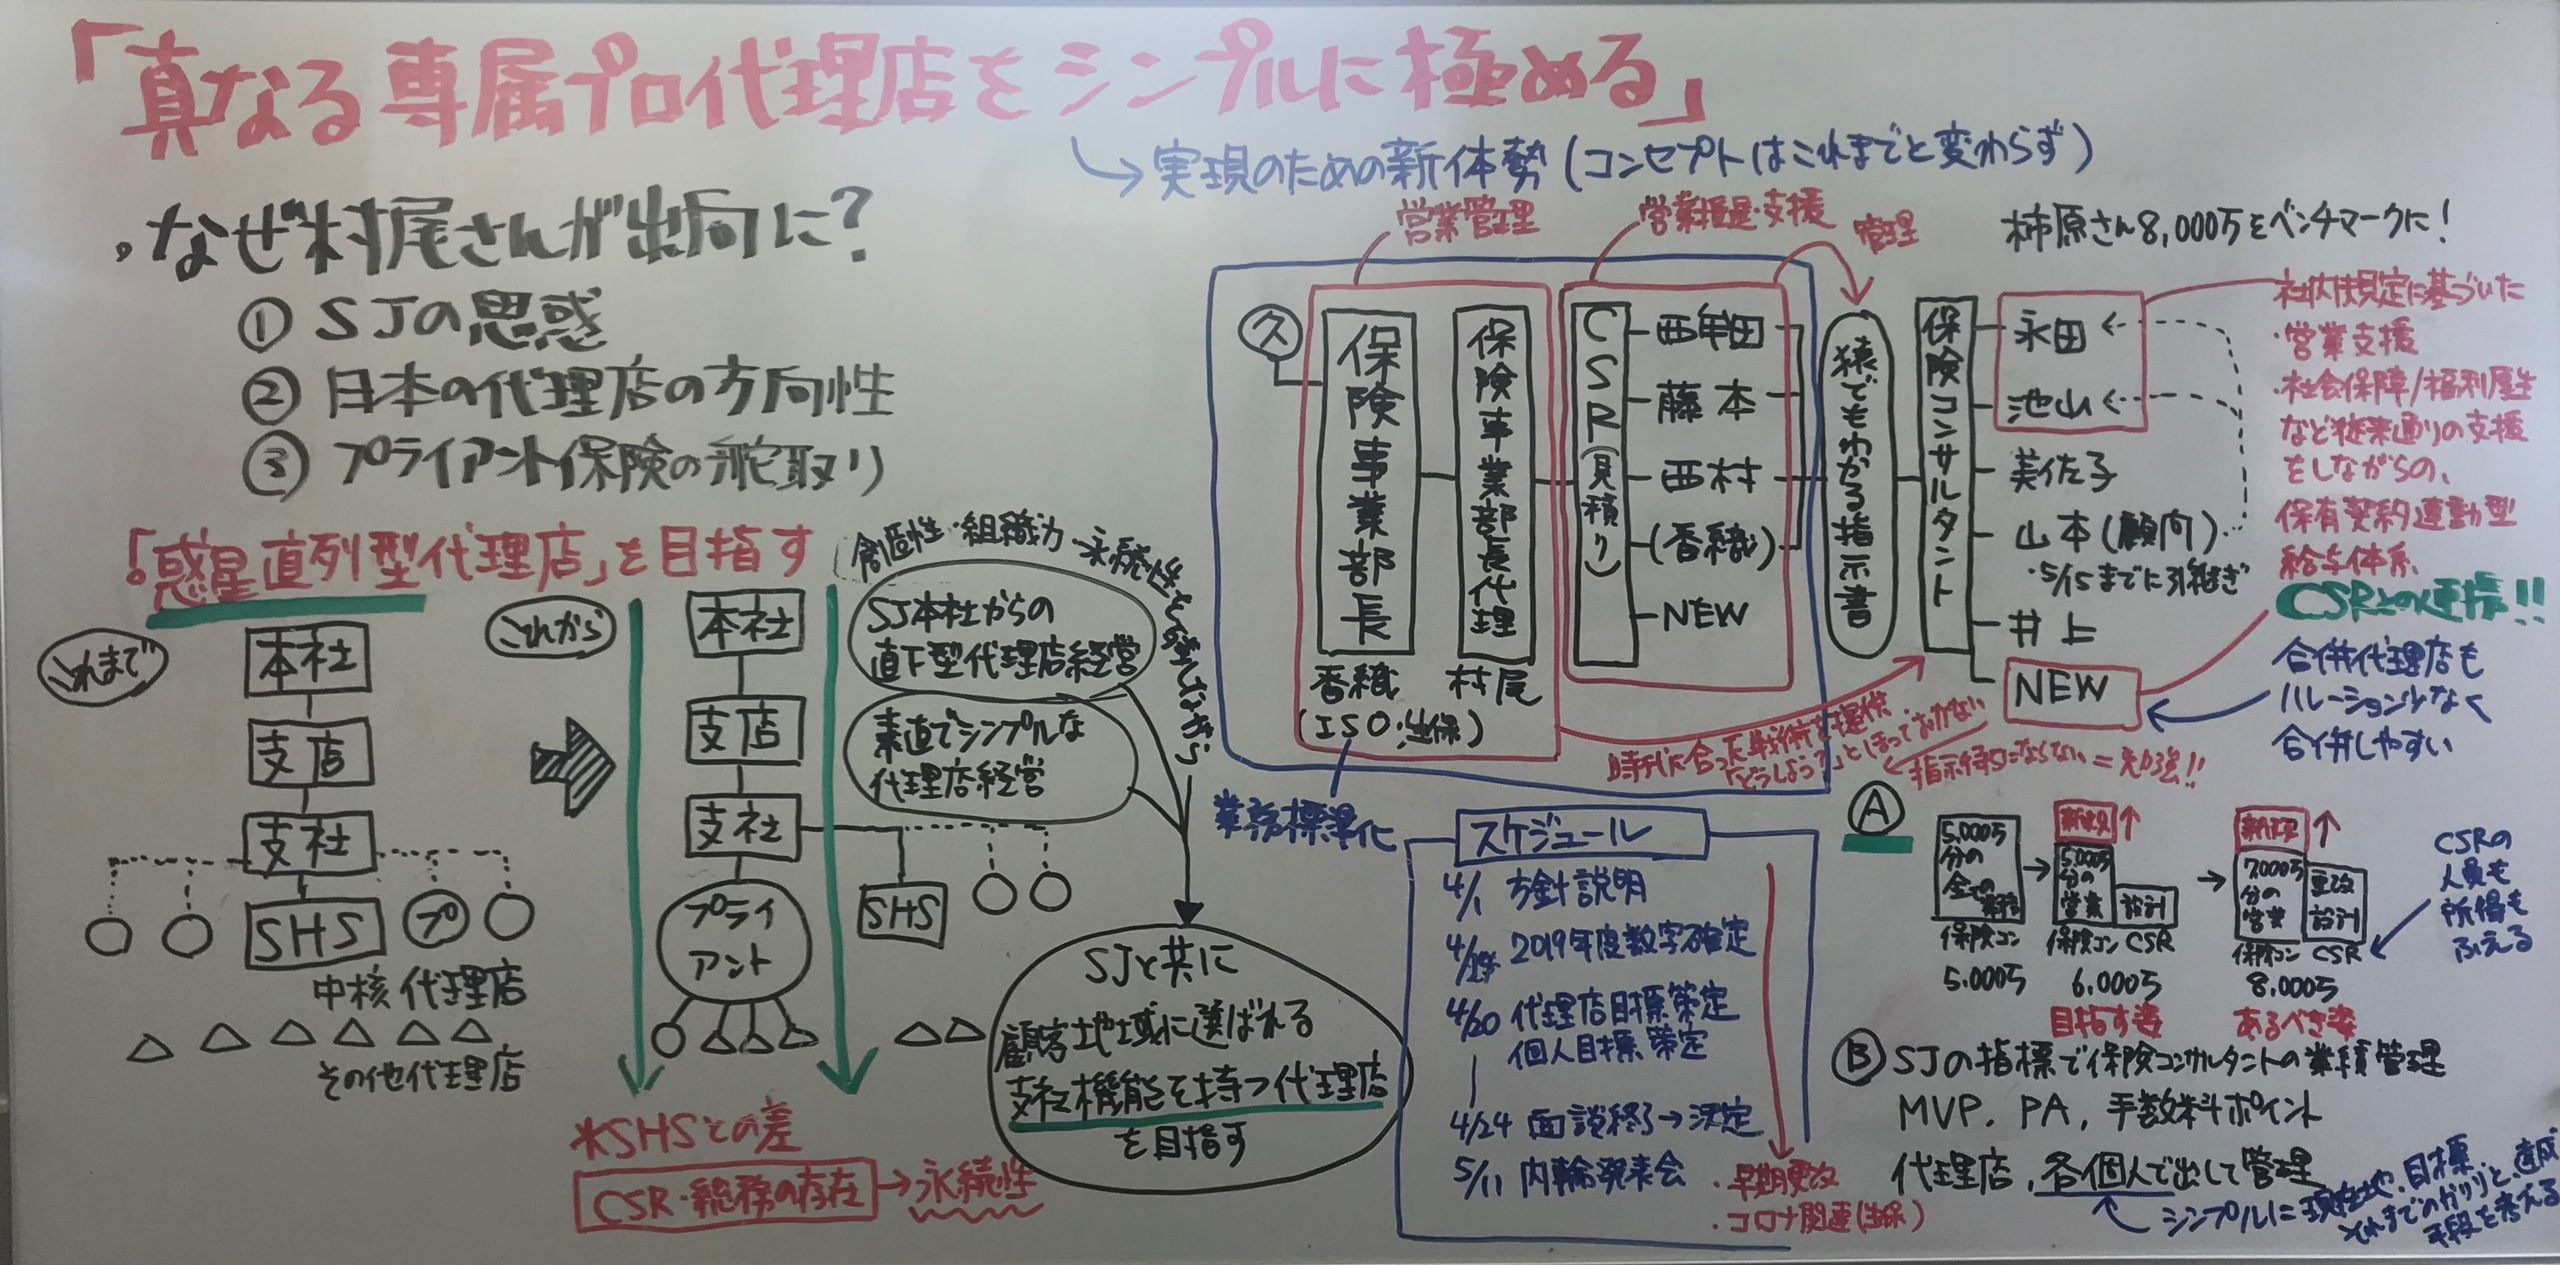 「真なる専属プロ代理店をシンプルに極める」
→実現のための新体勢(コンセプトはこれまでと変わらず)
・なぜ村尾さんが出向に?
①SJの思惑
②日本の代理店の方向性
③プライアント保険の舵取り
「惑星直列型代理店」を目指す
これまで
本社
支店
支社
SHS
プ
中核代理店
その他代理店
これから
本社
支店
支社
プライ
アント
SHS
創造性・組織力・永続性を
SJ本社からの
直下型代理店経営
素直でシンプルな
代理店経営
SJと共に
顧客地域に選ばれる
支社機能を持つ代理店
を目指す
*SHSとの差
CSR・総務の存在→永続性
営業管理
営業推進・支援
管理
久
保険事業部長
香織
(ISO・生保)
保険事業部長代理
村尾
CSR(見積り)
西牟田
藤本
西村
(香織)
NEW
猿でもわかる指示書
保険コンサルタント
柿原さん8,000万をベンチマークに!
永田
池山
美佐子
山本(顧問)
・5/15までに引継ぎ
井上
NEW
社内規定に基づいた
・営業支援
・社会保障/福利厚生
など従来通りの支援
をしながらの、
保有契約連動型
給与体系
CSRとの連携!!
合併代理店も
ハレーション少なく
合併しやすい
時代に合った戦術を提供・
「どうしよう?」とほっておかない
指示待ちにならない=勉強!!
業務標準化
スケジュール
4/1 方針説明
2019年度数字確定
4/20 代理店目標策定
個人目標策定
4/24 面談終了→決定
5/11 内輪発表会
・早期更改
・コロナ関連(生保)
A
5,000万
分の
全ての
保険コン
5,000万
新規↑
5,000万
分の
営業
設計
保険コン CSR
6,000万
目指す姿
新規↑
7,000万
分の
営業
更改
設計
保険コン CSR
8,000万
あるべき姿
CSRの
人員も
所得も
ふえる
B SJの指標で保険コンサルタントの業績管理
MVP, PA, 手数料ポイント
代理店, 各個人で出して管理
シンプルに現在地, 目標,
それまでのかいりと, 達成
手段を考える